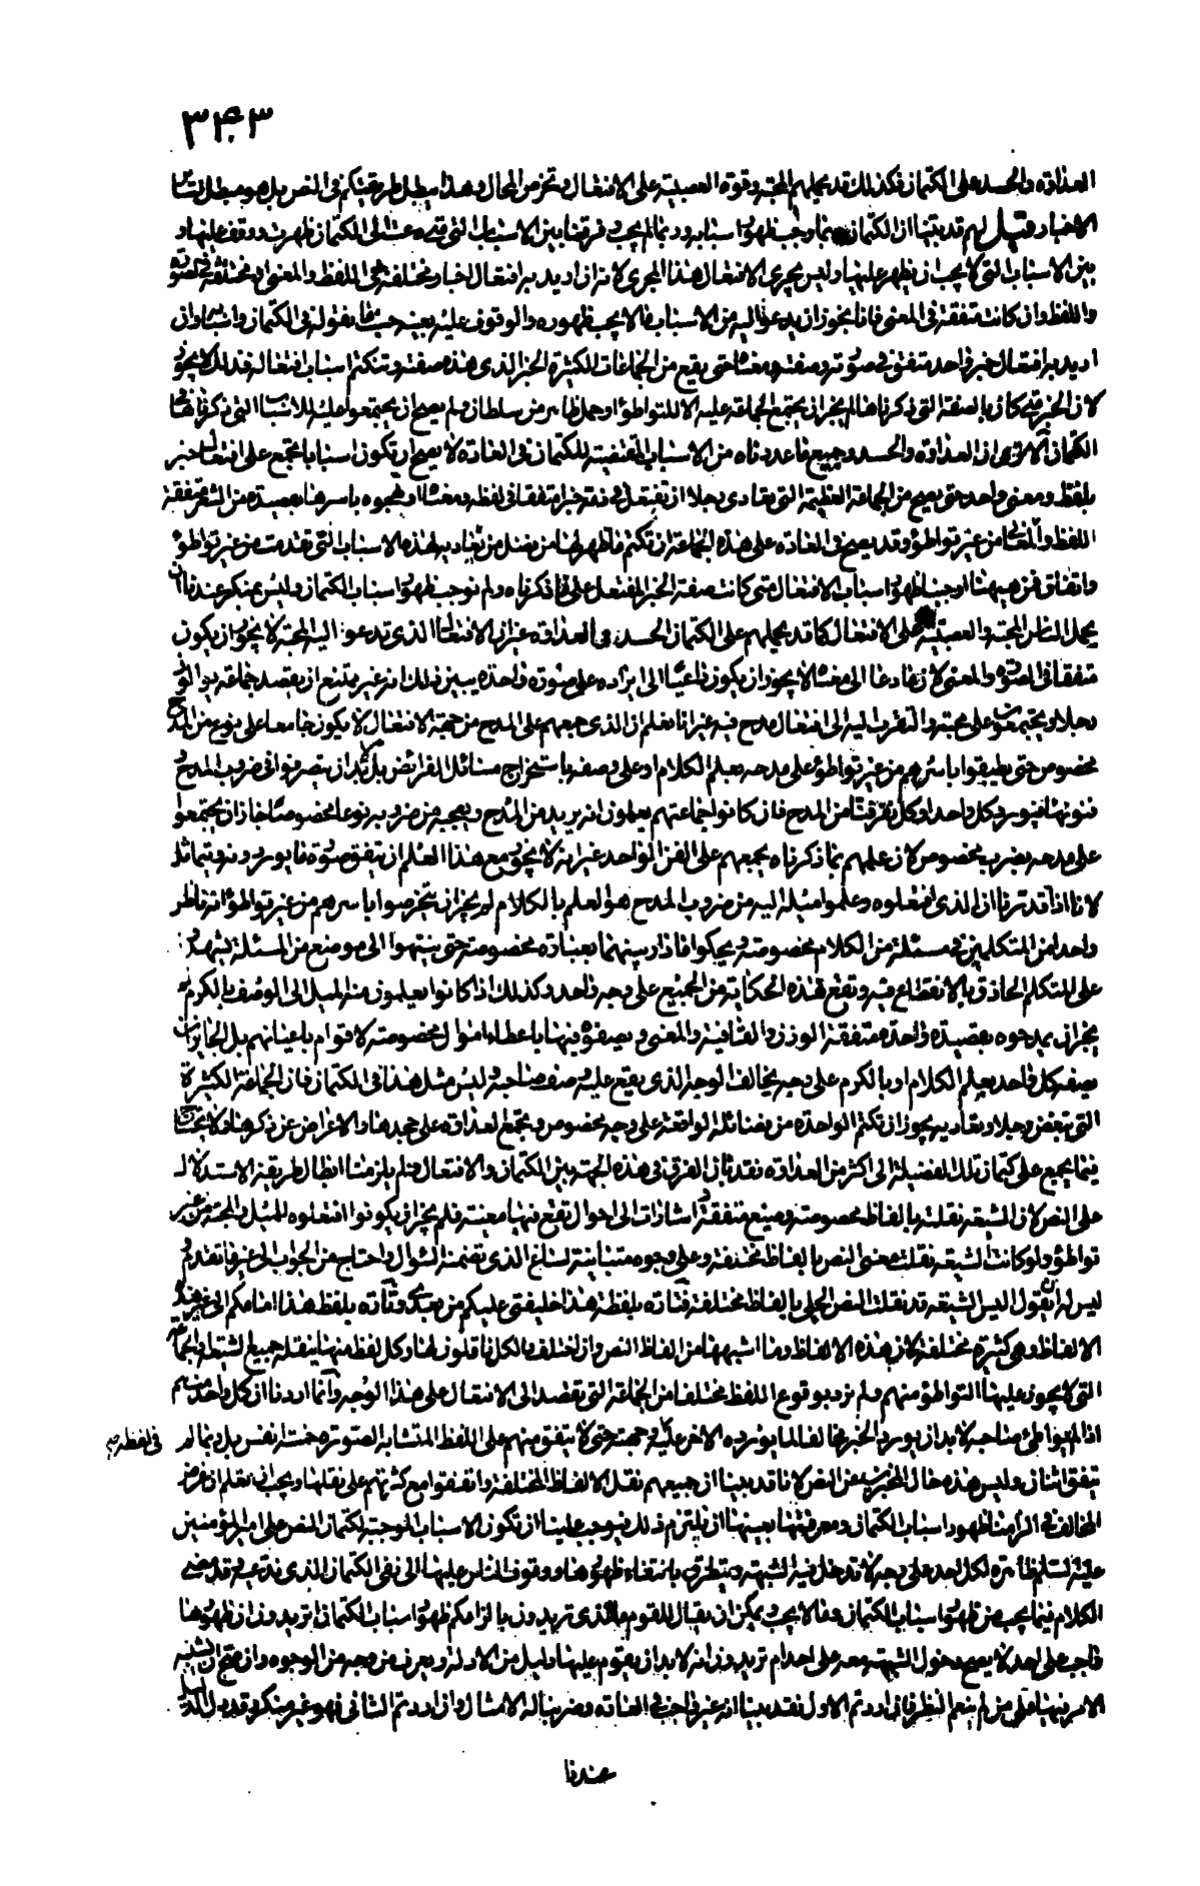 ٣٤٣
العداوة والحسد على الكتمان فكذلك قد يحملهم المحبة وقوة العصبية على الافتعال وتخرص المحال وهذا يبطل طريقتكم في النص بل هو مبطل لسائر
الاخبار قيل لهم قد بيّنا ان الكتمان منما وجب ظهور اسبابه وربما لم يجب وفرقنا بين الاسباب التي متى دعت الى الكتمان ظهرت ووقف عليها و
بين الاسباب التي لا يجب ان يظهر عليها وليس يجري الافتعال هذا المجرى لانه ان اريد به افتعال اخبار مختلفة في اللفظ والمعنى او مختلفة في الصورة
واللفظ وان كانت متفقة في المعنى فانه يجوز ان يدعو اليه من الاسباب ما لا يجب ظهوره والوقوف عليه بعينه حسب ما نقوله في الكتمان واسبابه وان
اريد به افتعال خبر واحد متفق في صورته وصفته ومعناه حتى يقع من الجماعات الكثيرة الخبر الذي هذه صفته وتنكتم اسباب افتعاله فذلك لا يجوز
لان الخبر متى كان بالصفة التي ذكرناها لم يجز ان يجتمع الجماعة عليه الا للتواطؤ او حمل ظاهر من سلطان ولم يصح ان يجتمعوا عليه للاسباب التي ذكرناها في
الكتمان الا ترى ان العداوة والحسد وجميع ما عددناه من الاسباب المقتضية للكتمان في العادة لا يصح ان تكون اسبابا تجمع على افتعال خبر
بلفظ ومعنى واحد حتى يصح من الجماعة العظيمة التي تعادي رجلا ان تفتعل في ذمه خبرا متفقا في لفظه ومعناه او تهجوه باسرها بقصيدة من الشعر متفقة
اللفظ والمعنى من غير تواطؤ وقد يصح في العادة على هذه الجماعة ان تكتم ما ظهر لها من فضل من تعاديه لهذه الاسباب التي تقدمت من غير تواطؤ
واتفاق فمن هيهنا اوجبنا ظهور اسباب الافتعال متى كانت صفة الخبر المفتعل على ما ذكرناه ولم نوجب ظهور اسباب الكتمان وليس بمنكر عندنا ان
يحمل الناس المحبة والعصبية على الافتعال كما قد يحملهم على الكتمان الحسد والعداوة غير ان الافتعال الذي تدعو اليه المحبة لا يجوز ان يكون
متفقا في الصورة والمعنى لان ما دعا الى معناه لا يجوز ان يكون داعيا الى ايراده على صورة واحدة يبين ذلك انه غير ممتنع ان يقصد جماعة يوالون
رجلا ويجتمعون على محبته والتقرب اليه الى افتعال مدح فيه غير انا نعلم ان الذي جمعهم على المدح من جهة الافتعال لا يكون جامعا على نوع من المدح
مخصوص حتى يطبقوا باسرهم من غير تواطؤ على مدحه بعلم الكلام او على وصفه باستخراج مسائل الفرائض بل لا بد ان يتصرفوا في ضروب المدح
فنونها فيورد كل واحد او كل فرقة فنا من المدح فان كانوا جماعتهم يعلمون انه يريد من المدح ويعجبه من ضروبه نوعا مخصوصا جاز ان يجتمعوا
على مدحه بضرب مخصوص لان علمهم بما ذكرناه يجمعهم على الفن الواحد غير انه لا يجوز مع هذا العلم ان يتفق صورة ما يوردونه ويتماثل
لانا اذا قدرنا ان الذي افتعلوه وعلموا ميله اليه من ضروب المدح هو العلم بالكلام لم يجز ان يتخرصوا باسرهم من غير تواطؤ انه ناظر
واحدا من المتكلمين في مسئلة من الكلام مخصوصة ويحكوا ما دار بينهما بعبارة مخصوصة حتى ينتهوا الى موضع من المسئلة يشهدون
على المتكلم الحاذق بالانقطاع فيه وتقع هذه الحكاية من الجميع على وجه واحد وكذلك اذا كانوا يعلمون منه الميل الى الوصف بالكرم لم
يجز ان يمدحوه بقصيدة واحدة متفقة الوزن والقافية والمعنى ويصفوه فيها باعطاء اموال مخصوصة لاقوام باعيانهم بل الجايز ان
يصفه كل واحد بعلم الكلام او بالكرم على وجه يخالف الوجه الذي يقع عليه وصف صاحبه وليس مثل هذا في الكتمان فان الجماعة الكثيرة
التي تبغض رجلا وتعاديه يجوز ان تكتم الواحدة من فضائله الواقعة على وجه مخصوص وتجمع العداوة على جحدها والاعراض عن ذكرها ولا يحتاج
فيما يجمع على كتمان تلك الفضيلة الى اكثر من العداوة فقد بان الفرق في هذه الجهة بين الكتمان والافتعال فلم يلزمنا ابطال طريقة الاستدلال
على النص لان الشيعة نقلته بالفاظ مخصوصة وصيغ متفقة واشارات الى احوال تقع فيها معينة فلم يجز ان يكونوا افتعلوه للميل والمحبة من غير
تواطؤ ولو كانت الشيعة نقلت معنى النص بالفاظ مختلفة وعلى وجوه متباينة لساغ الذي تضمنه السؤال واحتاج من الجواب الى غير ما تقدم و
ليس له ان يقول اليس الشيعة قد نقلت النص الجلي بالفاظ مختلفة فتارة بلفظة هذا خليفتي عليكم من بعدي وتارة بلفظ هذا امامكم الى غير هذه
الالفاظ وهي كثيرة مختلفة لان هذه الالفاظ وما اشبهها من الفاظ النص وان اختلف فالكل ناقلون لها وكل لفظ منها ينقله جميع الشيعة والجماعة
التي لا يجوز عليها التواطؤ منهم ولم نرد بوقوع اللفظ مختلفا من الجماعة التي تقصد الى الافتعال على هذا الوجه وانما اردنا ان كل واحد منهم
اذا لم يواطئ صاحبه لا بد ان يورد الخبر مخالفا لما يورده الاخر عليه وجهته حتى لا يتفق منهم على اللفظ المتشابه الصورة خمسة نفس بل ربما لم في لفظه صح
يتفق اثنان وليس هذه حال المخبرين عن النص لانا قد بينا ان جميعهم نقل الالفاظ المختلفة واتفقوا مع كثرتهم على نقلها ويجب ان نعلم ان غرض
المخالف في الزامنا ظهور اسباب الكتمان ومعرفتها بعينها ان يلتزم ذلك فيوجب علينا ان تكون الاسباب الموجبة لكتمان النص على امير المؤمنين
عليه السلم ظاهرة لكل احد على وجه لا تدخل فيه الشبهة ويتطرق بانتفاء ظهورها ووقوف الناس عليها الى نفي الكتمان الذي ندعيه وقد مضى
الكلام فيما يجب من ظهور اسباب الكتمان وما لا يجب ويمكن ان يقال للقوم ما الذي تريدون بالزامكم ظهور اسباب الكتمان اتريدون ان ظهورها
واجب على احد لا يصح دخول الشبهة معه على احد ام تريدون انه لا بد ان يقوم عليها دليل من الادلة ويعرف من وجه من الوجوه وان صح ان يشتبه
الامر فيها على من لم ينعم النظر فان اردتم الاول فقد بينا انه غير واجب في العادة وضربنا له الامثال وان اردتم الثاني فهو غير منكر وقد دل الدليل
عندنا